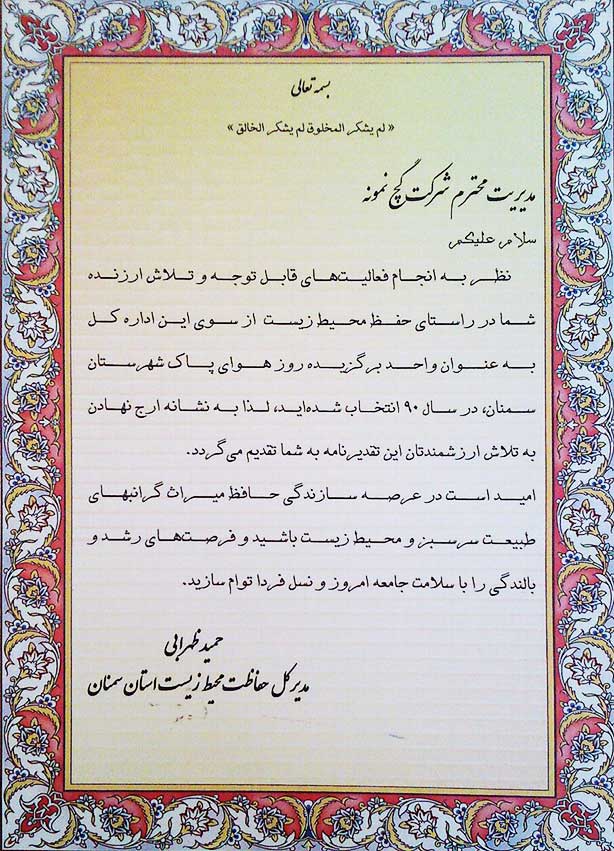 بسمه تعالی
« لم یشکر المخلوق لم یشکر الخالق »
مدیریت محترم شرکت گچ نمونه
سلام علیکم
نظر به انجام فعالیت‌های قابل توجه و تلاش ارزنده
شما در راستای حفظ محیط زیست از سوی این اداره کل
به عنوان واحد برگزیده روز هوای پاک شهرستان
سمنان، در سال ۹۰ انتخاب شده‌اید، لذا به نشانه ارج نهادن
به تلاش ارزشمندتان این تقدیرنامه به شما تقدیم می‌گردد.
امید است در عرصه سازندگی حافظ میراث گرانبهای
طبیعت سرسبز و محیط زیست باشید و فرصت‌های رشد و
بالندگی را با سلامت جامعه امروز و نسل فردا توام سازید.
حمید ظهرابی
مدیر کل حفاظت محیط زیست استان سمنان